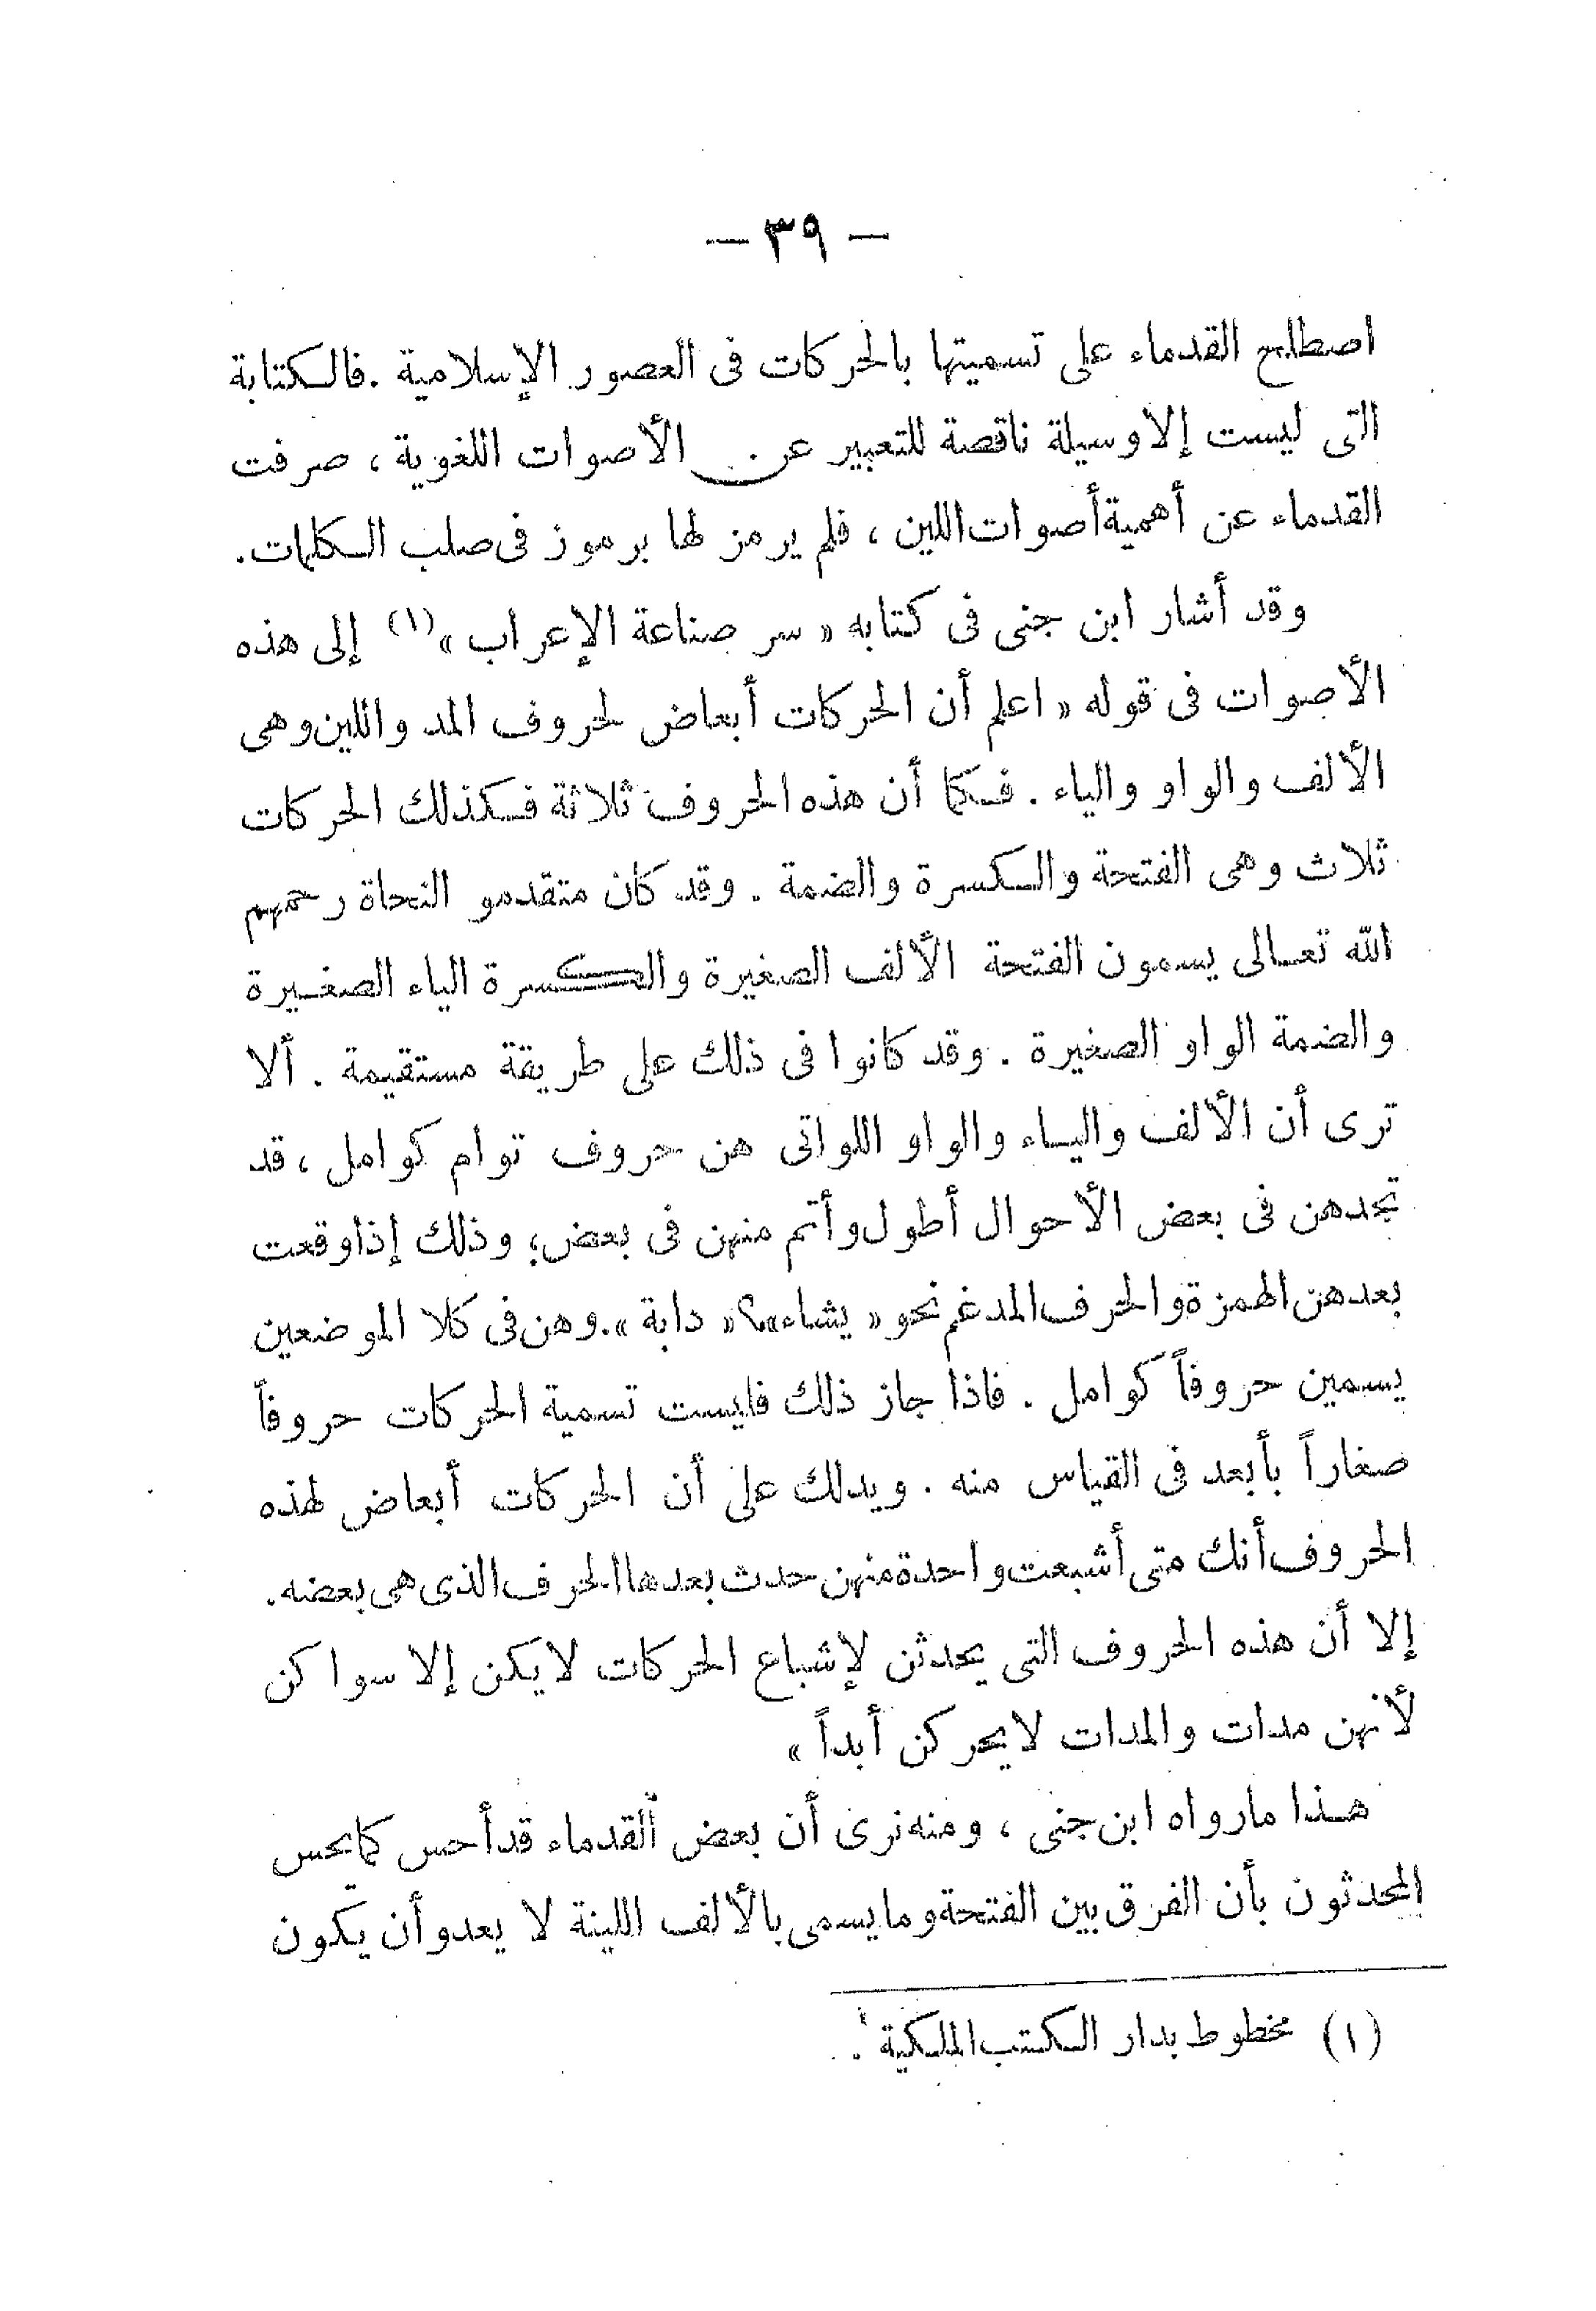 — ٣٩ —
اصطلح القدماء على تسميتها بالحركات فى العصور الإسلامية . فالكتابة
التى ليست إلا وسيلة ناقصة للتعبير عن الأصوات اللغوية ، صرفت
القدماء عن أهمية أصوات اللين ، فلم يرمز لها برموز فى صلب الكلمات .
وقد أشار ابن جنى فى كتابه « سر صناعة الإعراب » (١) إلى هذه
الأصوات فى قوله « اعلم أن الحركات أبعاض لحروف المد واللين وهى
الألف والواو والياء . فكما أن هذه الحروف ثلاثة فكذلك الحركات
ثلاث وهى الفتحة والكسرة والضمة . وقد كان متقدمو النحاة رحمهم
الله تعالى يسمون الفتحة الألف الصغيرة والكسرة الياء الصغيرة
والضمة الواو الصغيرة . وقد كانوا فى ذلك على طريقة مستقيمة . ألا
ترى أن الألف والياء والواو اللواتى هن حروف توام كوامل ، قد
تجدهن فى بعض الأحوال أطول وأتم منهن فى بعض ، وذلك إذا وقعت
بعدهن الهمزة والحرف المدغم نحو « يشاء » ؟ « دابة » . وهن فى كلا الموضعين
يسمين حروفاً كوامل . فاذا جاز ذلك فليست تسمية الحركات حروفاً
صغاراً بأبعد فى القياس منه . ويدلك على أن الحركات أبعاض لهذه
الحروف أنك متى أشبعت واحدة منهن حدث بعدها الحرف الذى هى بعضه .
إلا أن هذه الحروف التى يحدثن لإشباع الحركات لا يكن إلا سواكن
لأنهن مدات والمدات لا يحركن أبداً »
هذا ما رواه ابن جنى ، ومنه نرى أن بعض القدماء قد أحس كما يحس
المحدثون بأن الفرق بين الفتحة وما يسمى بالألف اللينة لا يعدو أن يكون
(١) مخطوط بدار الكتب الملكية .